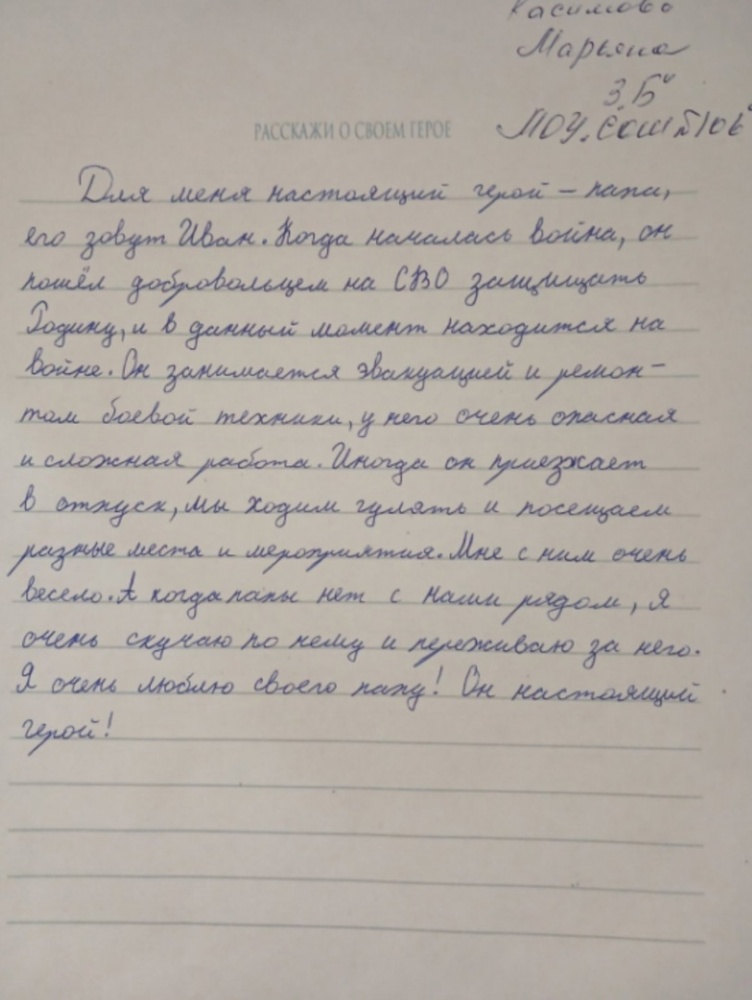 Касимова
Марьяна
3 "Б"
МОУ "СОШ №106"
РАССКАЖИ О СВОЕМ ГЕРОЕ
Для меня настоящий герой – папа,
его зовут Иван. Когда началась война, он
пошёл добровольцем на СВО защищать
Родину, и в данный момент находится на
войне. Он занимается эвакуацией и ремон-
том боевой техники, у него очень опасная
и сложная работа. Иногда он приезжает
в отпуск, мы ходим гулять и посещаем
разные места и мероприятия. Мне с ним очень
весело. А когда папы нет с нами рядом, я
очень скучаю по нему и переживаю за него.
Я очень люблю своего папу! Он настоящий
герой!